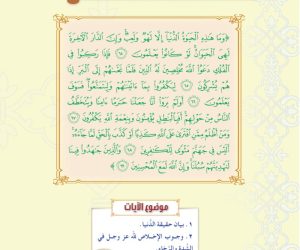 ﴿وَمَا هَٰذِهِ الْحَيَوٰةُ الدُّنْيَا إِلَّا لَهْوٌ وَلَعِبٌ وَإِنَّ الدَّارَ الْآخِرَةَ
لَهِيَ الْحَيَوَانُ لَوْ كَانُوا يَعْلَمُونَ ٦٤ فَإِذَا رَكِبُوا فِي
الْفُلْكِ دَعَوُا اللَّهَ مُخْلِصِينَ لَهُ الدِّينَ فَلَمَّا نَجَّىٰهُمْ إِلَى الْبَرِّ إِذَا
هُمْ يُشْرِكُونَ ٦٥ لِيَكْفُرُوا بِمَا ءَاتَيْنَٰهُمْ وَلِيَتَمَتَّعُوا فَسَوْفَ
يَعْلَمُونَ ٦٦ أَوَلَمْ يَرَوْا أَنَّا جَعَلْنَا حَرَمًا ءَامِنًا وَيُتَخَطَّفُ
النَّاسُ مِنْ حَوْلِهِمْ أَفَبِالْبَٰطِلِ يُؤْمِنُونَ وَبِنِعْمَةِ اللَّهِ يَكْفُرُونَ ٦٧
وَمَنْ أَظْلَمُ مِمَّنِ افْتَرَىٰ عَلَى اللَّهِ كَذِبًا أَوْ كَذَّبَ بِالْحَقِّ لَمَّا جَاءَهُ
أَلَيْسَ فِي جَهَنَّمَ مَثْوًى لِلْكَٰفِرِينَ ٦٨ وَالَّذِينَ جَٰهَدُوا فِينَا
لَنَهْدِيَنَّهُمْ سُبُلَنَا وَإِنَّ اللَّهَ لَمَعَ الْمُحْسِنِينَ ٦٩﴾
موضوع الآيات
١. بيان حقيقة الدنيا.
٢. وجوب الإخلاص لله عز وجل في
الشدة والرخاء.